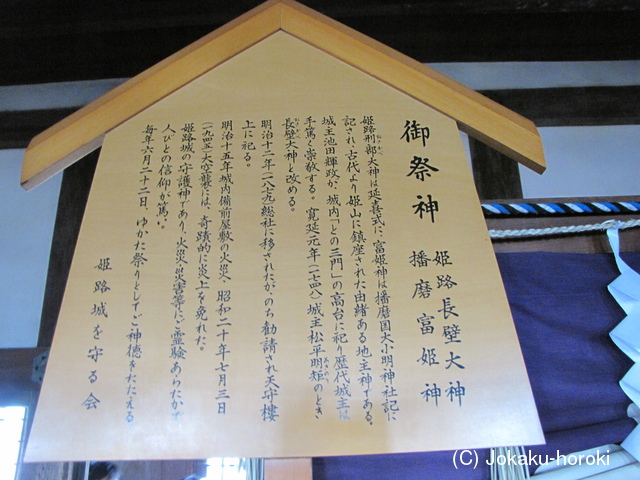 御祭神
姫路長壁大神
播磨富姫神
姫路刑部大神は延喜式に、富姫神は播磨国大小明神社記に
記され古代より姫山に鎮座された由緒ある地主神である。
城主池田輝政が、城内「との三門」の高台に祀り歴代城主は
手篤く崇敬する。寛延元年(一七四八)城主松平明矩のとき
長壁大神と改める。
明治十二年(一八七九)総社に移されたが、のち勧請され天守楼
上に祀る。
明治十五年城内備前屋敷の火災、昭和二十年七月三日
(一九四五)大空襲には、奇蹟的に炎上を免れた。
姫路城の守護神であり、火災、災害等にご霊験あらたかで
人びとの信仰が篤い。
毎年六月二十二日、ゆかた祭りとしてご神徳をたたえる
姫路城を守る会
(C) Jokaku-horoki